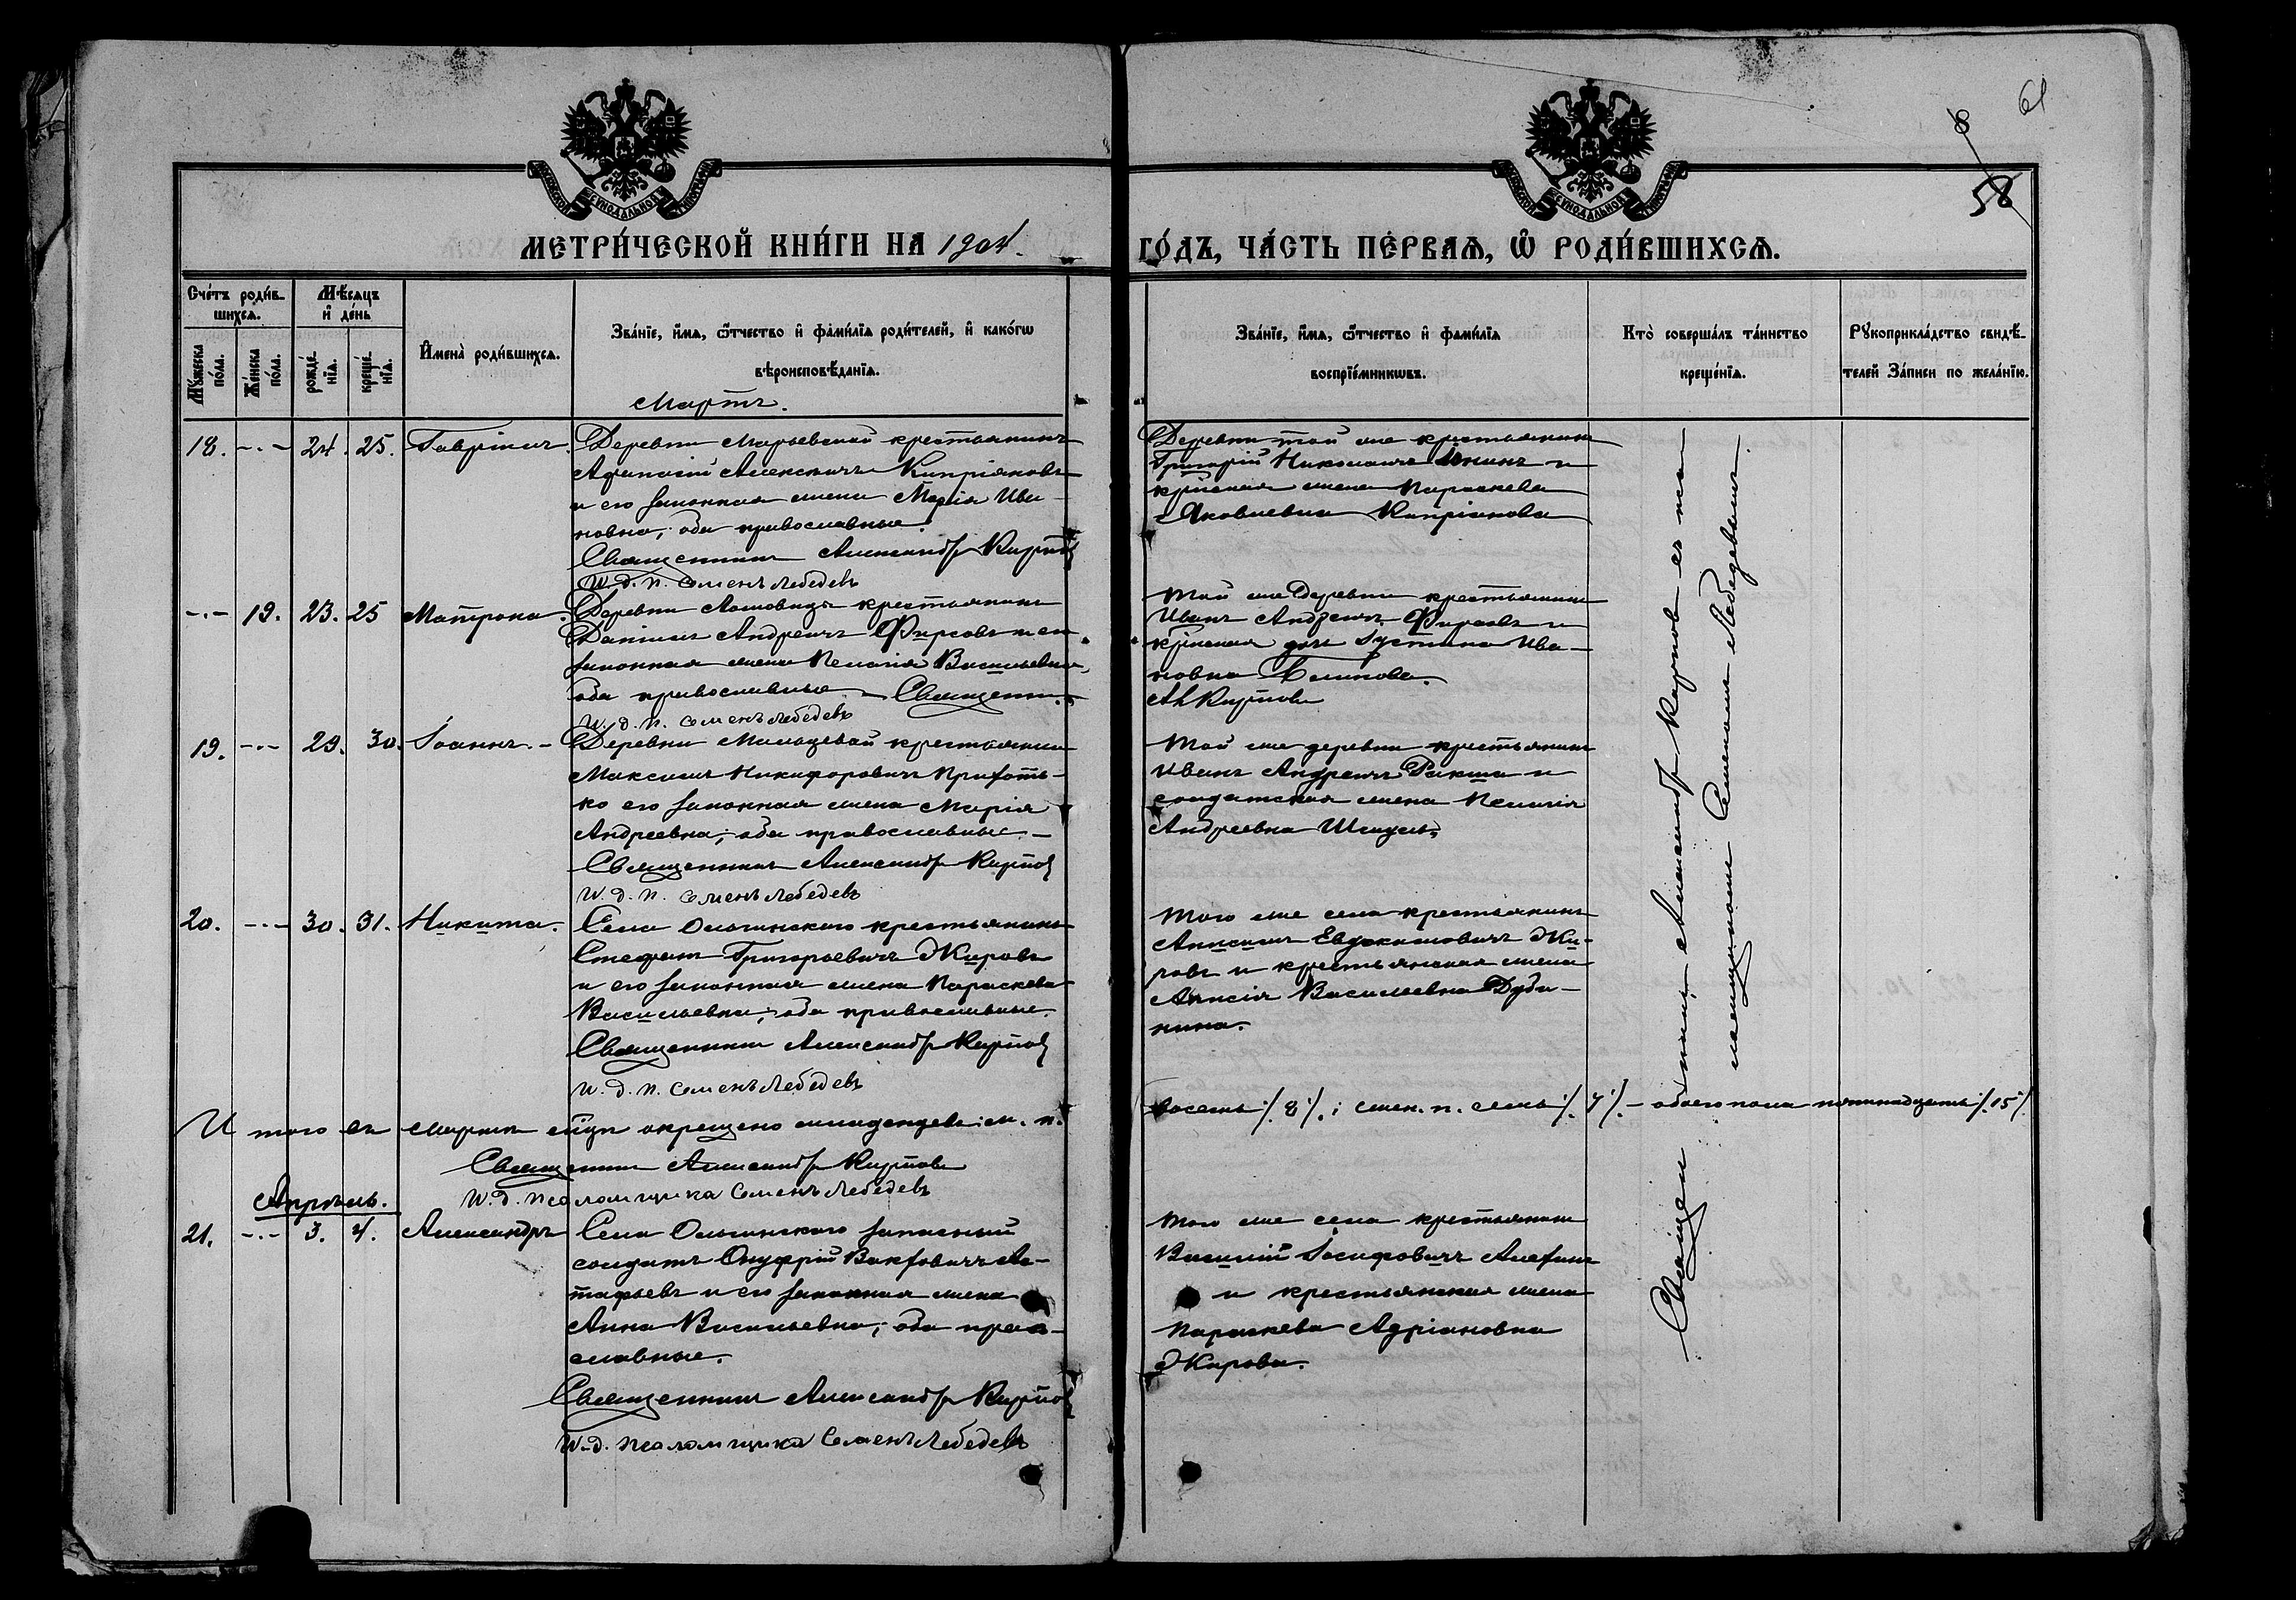 61
8
58
МЕТРИ́ЧЕСКОЙ КНИ́ГИ НА 1904. ГО́ДЪ, ЧА́СТЬ ПЕ́РВАѦ, Ѡ҆ РОДИ́ВШИХСѦ.
Сче́тъ роди́в-
шихсѧ.
Мꙋ́жеска по́ла.
Же́нска по́ла.
Мѣ́сѧцъ
и҆ де́нь
рожде́нїѧ.
креще́нїѧ.
И҆мена̀ роди́вшихсѧ.
Зва́нїе, и҆́мѧ, ѻ҆́тчество и҆ фами́лїѧ роди́телей, и҆ како́гѡ
вѣроисповѣ́данїѧ.
Зва́нїе, и҆́мѧ, ѻ҆́тчество и҆ фами́лїѧ
воспрїе́мникѡвъ.
Кто̀ соверша́лъ та́инство
креще́нїѧ.
Рꙋкоприкла́дство свидѣ́-
телей за́писи по жела́нїю.
Мартъ.
18. -·- 24. 25. Гавріилъ.
Деревни Марьевской крестьянинъ
Афанасій Алексѣичъ Кипріяновъ
и его законная жена Марія Ива-
новна, оба православные.
Священникъ Александръ Карповъ
И. д. п. Семенъ Лебедевъ
Деревни той же крестьянинъ
Григорій Николаичъ и
крестьянская жена Параскева
Яковлевна Кипріянова
-·- 19. 23. 25 Матрона.
Деревни крестьянинъ
Даніилъ Андреичъ Фирсовъ и его
законная жена Пелагія Васильевна,
оба православные. Священникъ
И. д. п. Семенъ Лебедевъ
Той же деревни крестьянинъ
Иванъ Андреичъ Фирсовъ и
дочь Іустина Ива-
новна Блинова.
Ал Карповъ
19. -·- 29. 30. Іоаннъ. -
Деревни крестьянинъ
Максимъ Никифоровичъ Прихоть-
ко его законная жена Марія
Андреевна, оба православные. -
Священникъ Александръ Карповъ
И. д. п. Семенъ Лебедевъ
Той же деревни крестьянинъ
Иванъ Андреичъ Ракша и
солдатская жена Пелагія
Андреевна
20. -·- 30. 31. Никита.
Села Ольгинскаго крестьянинъ
Стефанъ Григорьевичъ Жировъ
и его законная жена Параскева
Васильевна, оба православные.
Священникъ Александръ Карповъ
И. д. п. Семенъ Лебедевъ
Того же села крестьянинъ
Анисимъ Евдокимовичъ Жи-
ровъ и крестьянская жена
Анисія Васильевна Дуби-
нина.
И того въ мартѣ окрещено младенцевъ: м. п. восемь /. 8 /. ; жен. п. семь /. 7 /. - обоего пола пятнадцать /. 15 /.
Священникъ Александръ Карповъ
И. д. псаломщика Семенъ Лебедевъ
Апрѣль.
21. -·- 3. 4. Александръ
Села Ольгинскаго запасный
солдатъ Онуфрій Ас-
тафьевъ и его законная жена
Анна Васильевна, оба право-
славные.
Священникъ Александръ Карповъ
И. д. псаломщика Семенъ Лебедевъ
Того же села крестьянинъ
Василій Іосифовичъ
и крестьянская жена
Параскева Адріановна
Жирова.
Священникъ Александръ Карповъ съ пса
ломщикомъ Семеномъ Лебедевымъ.